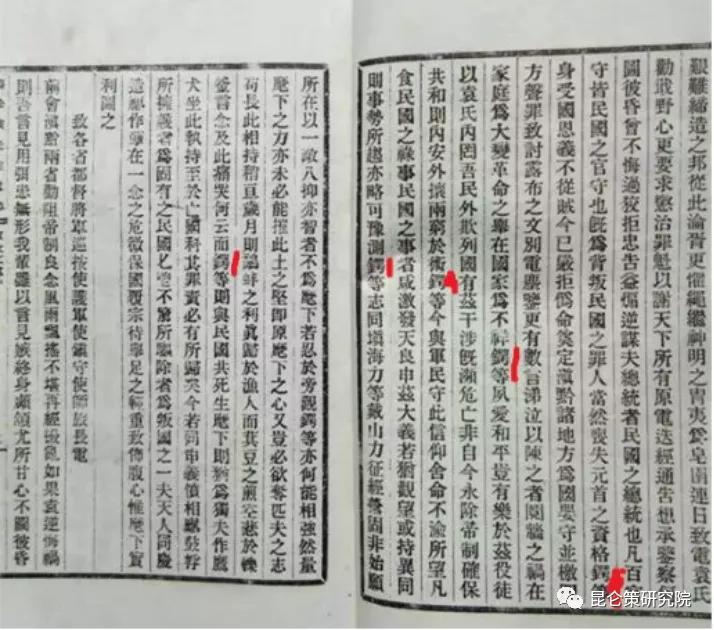 艱難締造之邦從此淪胥更懼繩繼神明之胄夷爲皂圉連日致電袁氏
勸戢野心更要求懲治罪魁以謝天下所有原電迭經通告想承鑒察
圖彼昏曾不悔過狡拒忠告益煽逆謀夫總統者民國之總統也凡百
守皆民國之官守也旣爲背叛民國之罪人當然喪失元首之資格鍔等
身受國恩義不從賊今已嚴拒僞命奠定滇黔諸地方爲國嬰守並檄四
方聲罪致討露布之文別電塵鑒更有數言涕泣以陳之者鬩牆之禍在
家庭爲大變革命之舉在國家爲不祥鍔等夙愛和平豈有樂於茲役徒
以袁氏內罔吾民外欺列國有茲干涉旣瀕危亡非自今永除帝制確保
共和則內安外攘兩窮於術鍔等今與軍民守此信仰舍命不渝所望凡
食民國之祿事民國之事者咸激發天良申茲大義若猶觀望或持異同
則事勢所趨亦略可豫測鍔等志同塡海力等戴山力征經營固非始願
所在以一敵八抑亦智者不爲麾下若忍於旁觀鍔等亦何能相強然量
麾下之力亦未必能摧此土之堅卽原麾下之心又豈必欲奪匹夫之志
苟長此相持稍亘歲月則鷸蚌之利眞歸於漁人而萁豆之煎空悲於轢
釜言念及此痛哭何云而鍔等則與民國共死生麾下則猶爲獨夫作鷹
犬坐此執持至於亡國科其罪責必有所歸矣今若同申義憤相應桴鼓
所擁護者爲固有之民國匕鬯不驚所驅除者爲叛國之一夫天人同慶
造孽作福在一念之危微保國覆宗待舉足之輕重致佈腹心惟麾下實
利圖之
致各省都督將軍巡按使護軍使鎮守使師旅長電
前會滇黔兩省勸阻帝制良念風雨飄搖不堪再經擾亂如果袁逆悔禍
則吾言見用弭患無形我輩雖以言見嫉終身顑頷尤所甘心不圖彼昏
昆仑策研究院